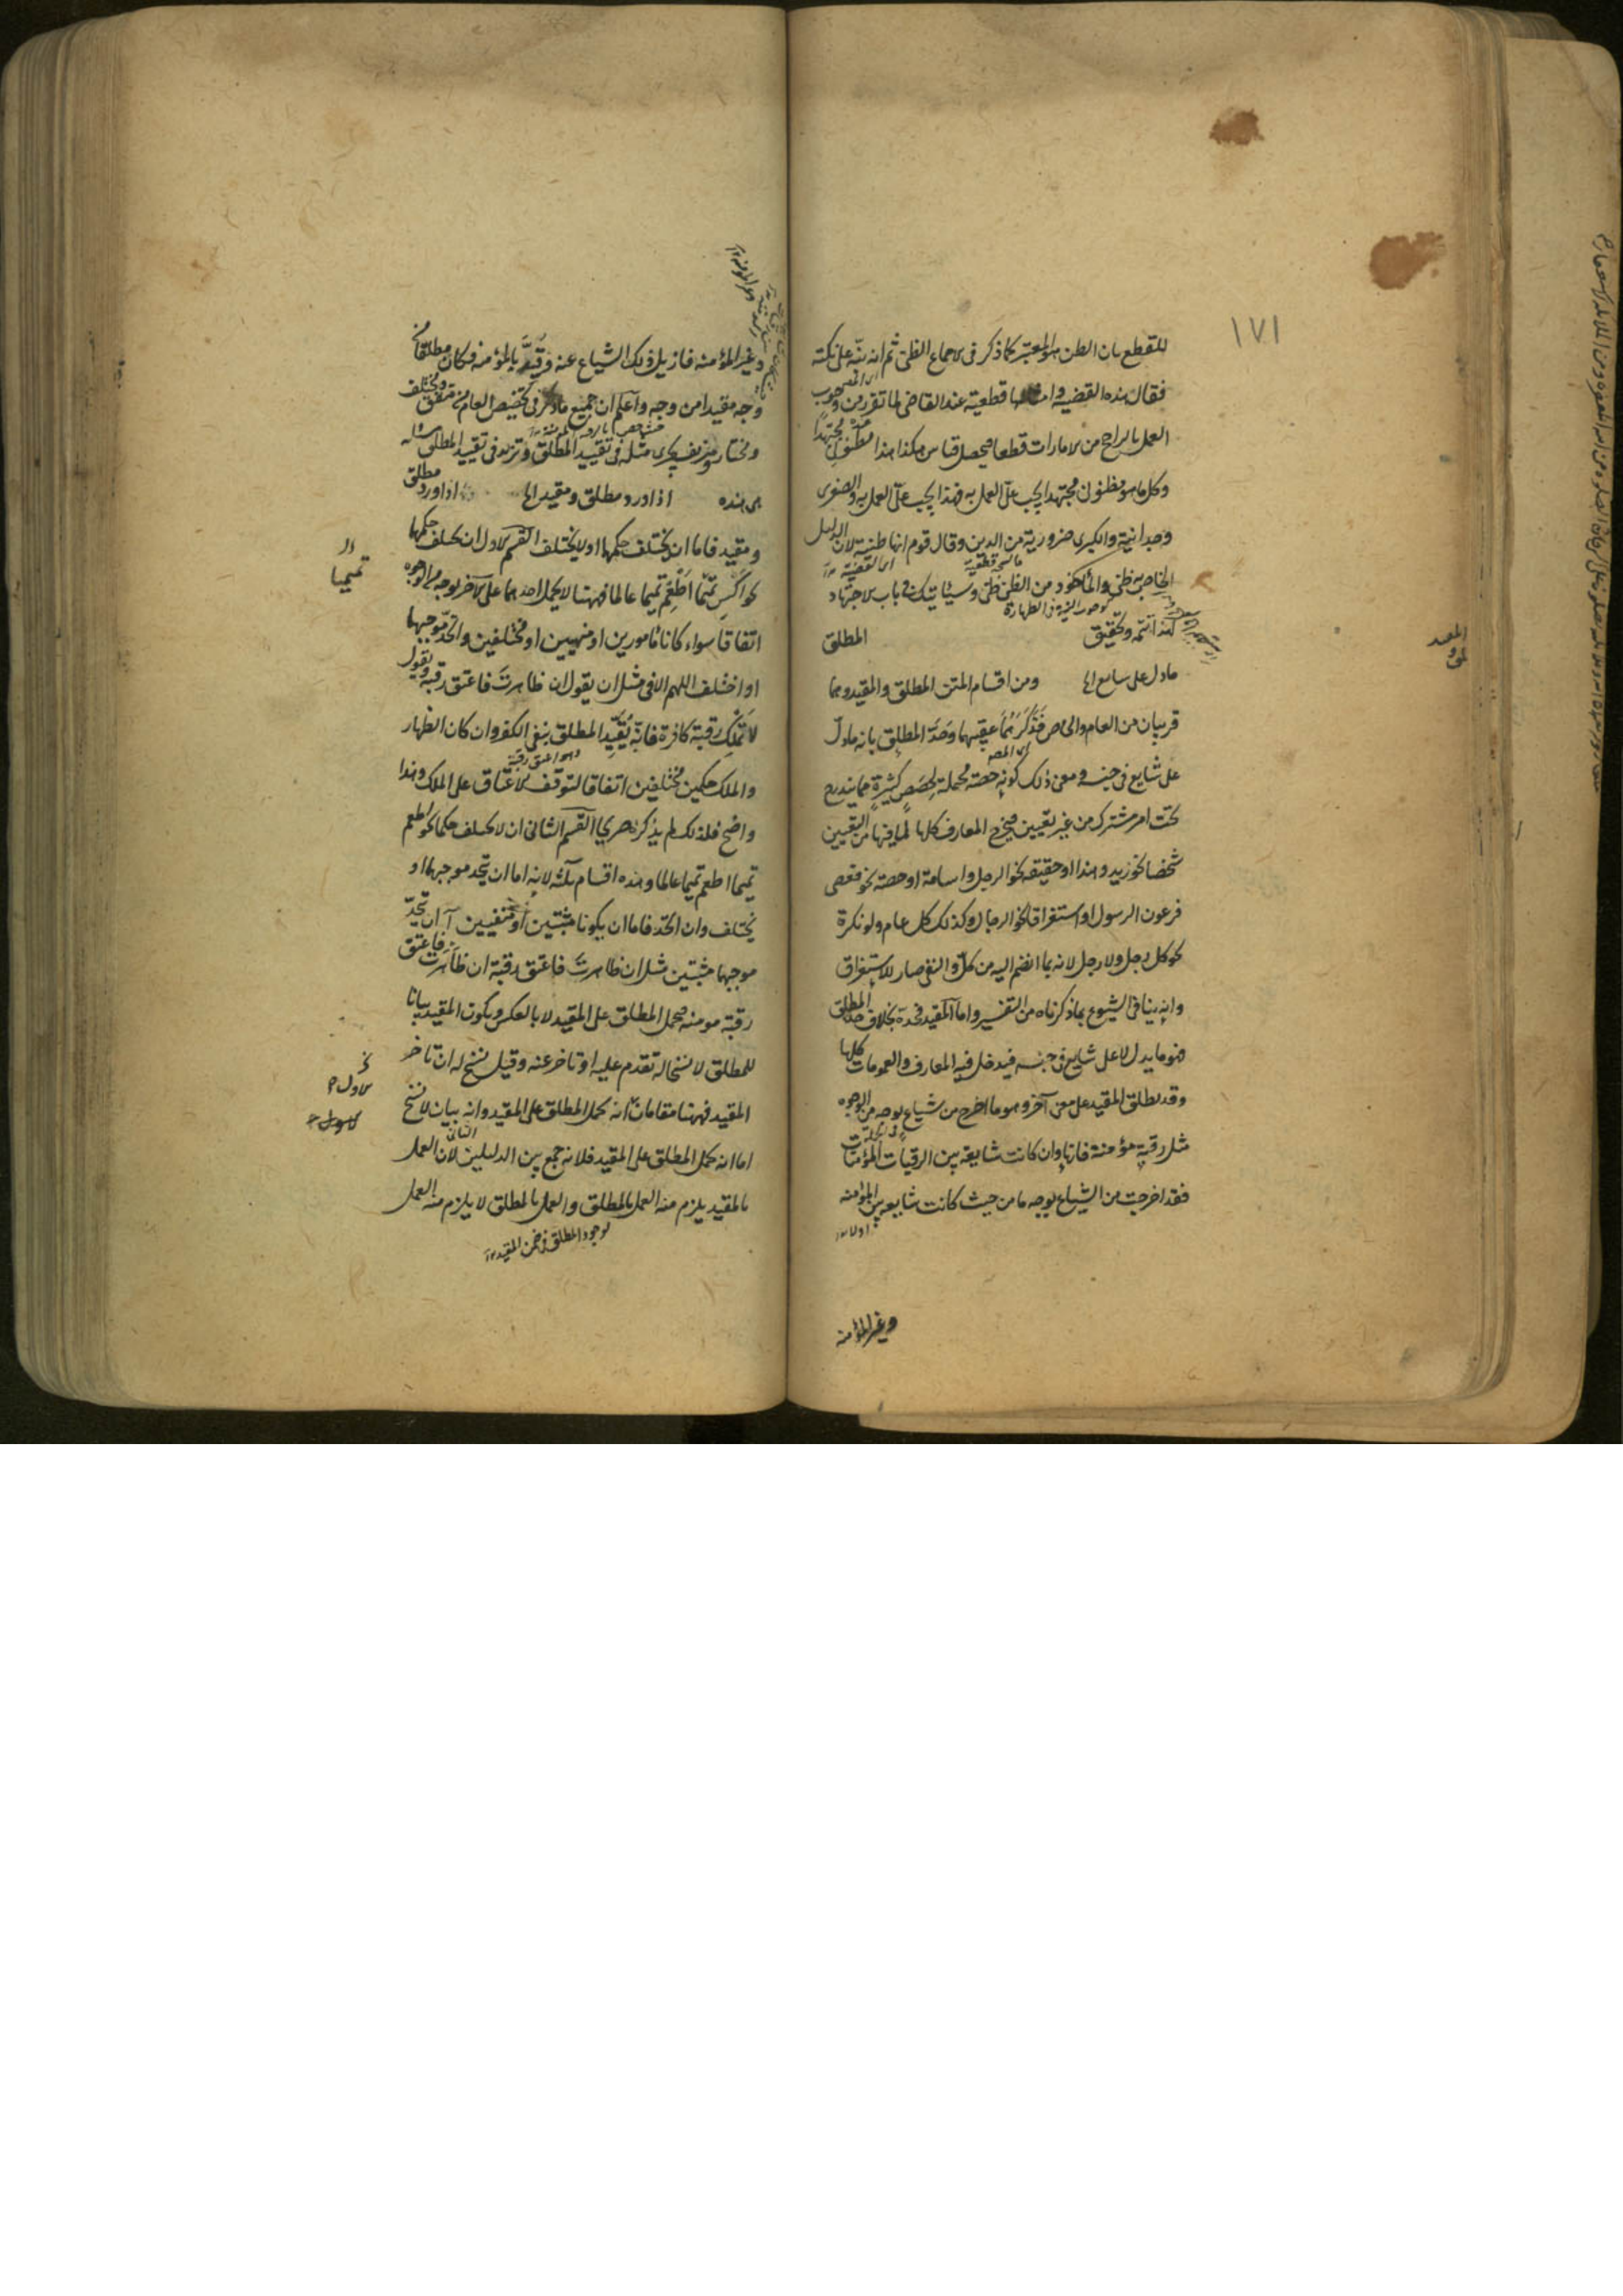 ١٧١
للقطع بان الظن هو المعتبر كما ذكر فى الاجماع الظنى ثم انه نبّه على نكتة
فقال هذه القضية وامثالها قطعية عند القاضى لما تقرر من وجوب
العمل بالراجح من الامارات قطعا فيحصل قياس هكذا هذا مظنون مجتهدا
وكل ما هو مظنون مجتهد يجب على العمل به فهذا يجب على العمل به والصغرى
وجدانية والكبرى ضرورية من الدين وقال قوم انها ظنية لان الدليل
الخاص به ظنى والمأخوذ من الظنى ظنى وسيأتيك فى باب الاجتهاد
لهذا تتمة وتحقيق المطلق
ما دل على شايع الخ ومن اقسام المتن المطلق والمقيد وهما
قريبان من العام والخاص فذكرهما عقيبهما وحدّ المطلق بانه ما دل
على شايع فى جنسه ومعنى ذلك كونه حصة محتملة لحصص كثيرة مما يندرج
تحت امر مشترك من غير تعيين فيخرج المعارف كلها لما فيها من التعيين
شخصا نحو زيد وهذا او حقيقة نحو الرجل واسامة او حصة نحو فعصى
فرعون الرسول او استغراقا نحو الرجال وكذلك كل عام ولو نكرة
نحو كل رجل ولا رجل لانه بما انضم اليه من كل والنفى صار للاستغراق
وانه ينافى الشيوع بما ذكرناه من التفسير واما المقيد فحده بخلاف حد المطلق
فهو ما يدل لا على شايع فى جنسه فيدخل فيه المعارف والعمومات كلها
وقد يطلق المقيد على معنى آخر وهو ما اخرج من شياع بوجه من الوجوه
مثل رقبة مؤمنة فانها وان كانت شايعة بين الرقبات المؤمنات
فقد اخرجت من الشياع بوجه ما من حيث كانت شايعة بين المؤمنة
وغير المؤمنة
وغير المؤمنة فازيل ذلك الشياع عنه وقيد بالمؤمنة فكان مطلقا من
وجه مقيدا من وجه واعلم ان جميع ما ذكر فى تخصيص العام من متفق ومختلف
ومختار ومزيف يجرى مثله فى تقييد المطلق ونزيد فى تقييد المطلق مسئلة
هى هذه اذا ورد مطلق ومقيد الخ اذا ورد مطلق
ومقيد فاما ان يختلف حكمهما او لا يختلف القسم الاول ان يختلف حكمهما
نحو اكس تميما اطعم تميما عالما فههنا لا يحمل احدهما على الآخر بوجه من الوجوه
اتفاقا سواء كانا مأمورين او منهيين او مختلفين واتحد موجبهما
او اختلف اللهم الا فى مثل ان يقول ان ظاهرت فاعتق رقبة ويقول
لا تملك رقبة كافرة فانه يقيد المطلق بنفى الكفر وان كان الظهار
والملك حكمين مختلفين اتفاقا لتوقف الاعتاق على الملك وهذا
واضح فلذلك لم يذكره صريحا القسم الثانى ان لا يختلف حكمهما نحو اطعم
تميما اطعم تميما عالما وهذه اقسام ثلثة لانه اما ان يتحد موجبهما او
يختلف وان اتحد فاما ان يكونا مثبتين او منفيين آ ان يتحد
موجبهما مثبتين مثل ان ظاهرت فاعتق رقبة ان ظاهرت فاعتق
رقبة مومنة فيحمل المطلق على المقيد لا بالعكس ويكون المقيد بيانا
للمطلق لا نسخا له تقدم عليه او تاخر عنه وقيل نسخ له ان تاخر
المقيد فههنا مقامان انه يحمل المطلق على المقيد وانه بيان لا نسخ
اما انه يحمل المطلق على المقيد فلانه جمع بين الدليلين لان العمل
بالمقيد يلزم منه العمل بالمطلق والعمل بالمطلق لا يلزم منه العمل
لوجود المطلق فى ضمن المقيد